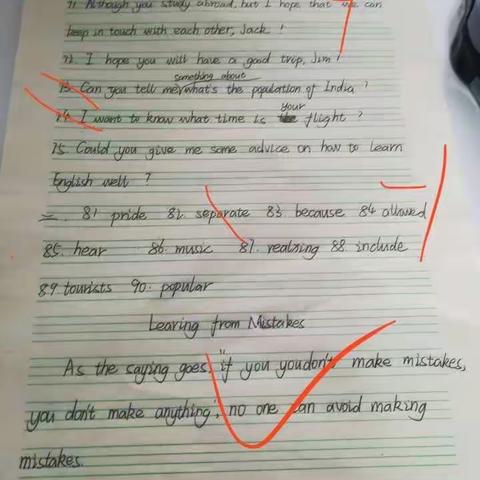 71. Although you study abroad, but I hope that we can
keep in touch with each other, Jack !
72. I hope you will have a good trip, Jim !
something about
73. Can you tell me what's the population of India ?
your
74. I want to know what time is flight ?
75. Could you give me some advice on how to learn
English well ?
二. 81. pride 82. separate 83. because 84. allowed
85. hear 86. music 87. realzing 88. include
89. tourists 90. popular
Learing from Mistakes
As the saying goes, "if you youdon't make mistakes,
you don't make anything", no one can avoid making
mistakes.